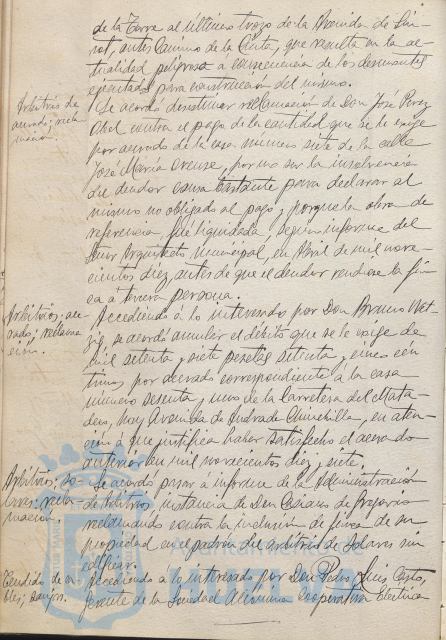 de la Torre al último trozo de la Avenida de
antes Camino de la Cinta, que resulta en la ac-
tualidad peligrosa a consecuencia de los desmontes
ejecutados para construcción del mismo.
Arbitrios de
acerado; recla
mación.
Se acordó desestimar reclamación de Don José Perez
Abal contra el pago de la cantidad que se le exige
por acerado de la casa número siete de la calle
José María por no ser la insolvencia
del deudor causa bastante para declarar al
mismo no obligado al pago, y porque la obra de
referencia, fué liquidada, según informe del
Señor Arquitecto Municipal, en Abril de mil nove-
cientos diez, antes de que el deudor vendiese la fin
ca a tercera persona.
Arbitrios; ace-
rado; reclama
ción.
Accediendo a lo interesado por Don Bruno Wet-
zig, se acordó anular el débito que se le exige de
mil setenta y siete pesetas setenta y cinco cén
timos, por acerado correspondiente á la casa
número sesenta y uno de la Carretera del Mata-
dero, hoy Avenida de Andrade Chinchilla, en aten-
ción á que justifica haber satisfecho el acerado
anterior en mil novecientos diez y siete.
Arbitrios; so-
lares; recla-
mación.
Se acordó pasar a informe de la Administración
de Arbitrios instancia de Don de Gregorio
reclamando contra la inclusión de finca de su
propiedad en el padrón del arbitrio de Solares sin
edificar.
Tendido de ca
bles;
Accediendo a lo interesado por Don Pedro Luis
Gerente de la Sociedad Cooperativa Eléctrica